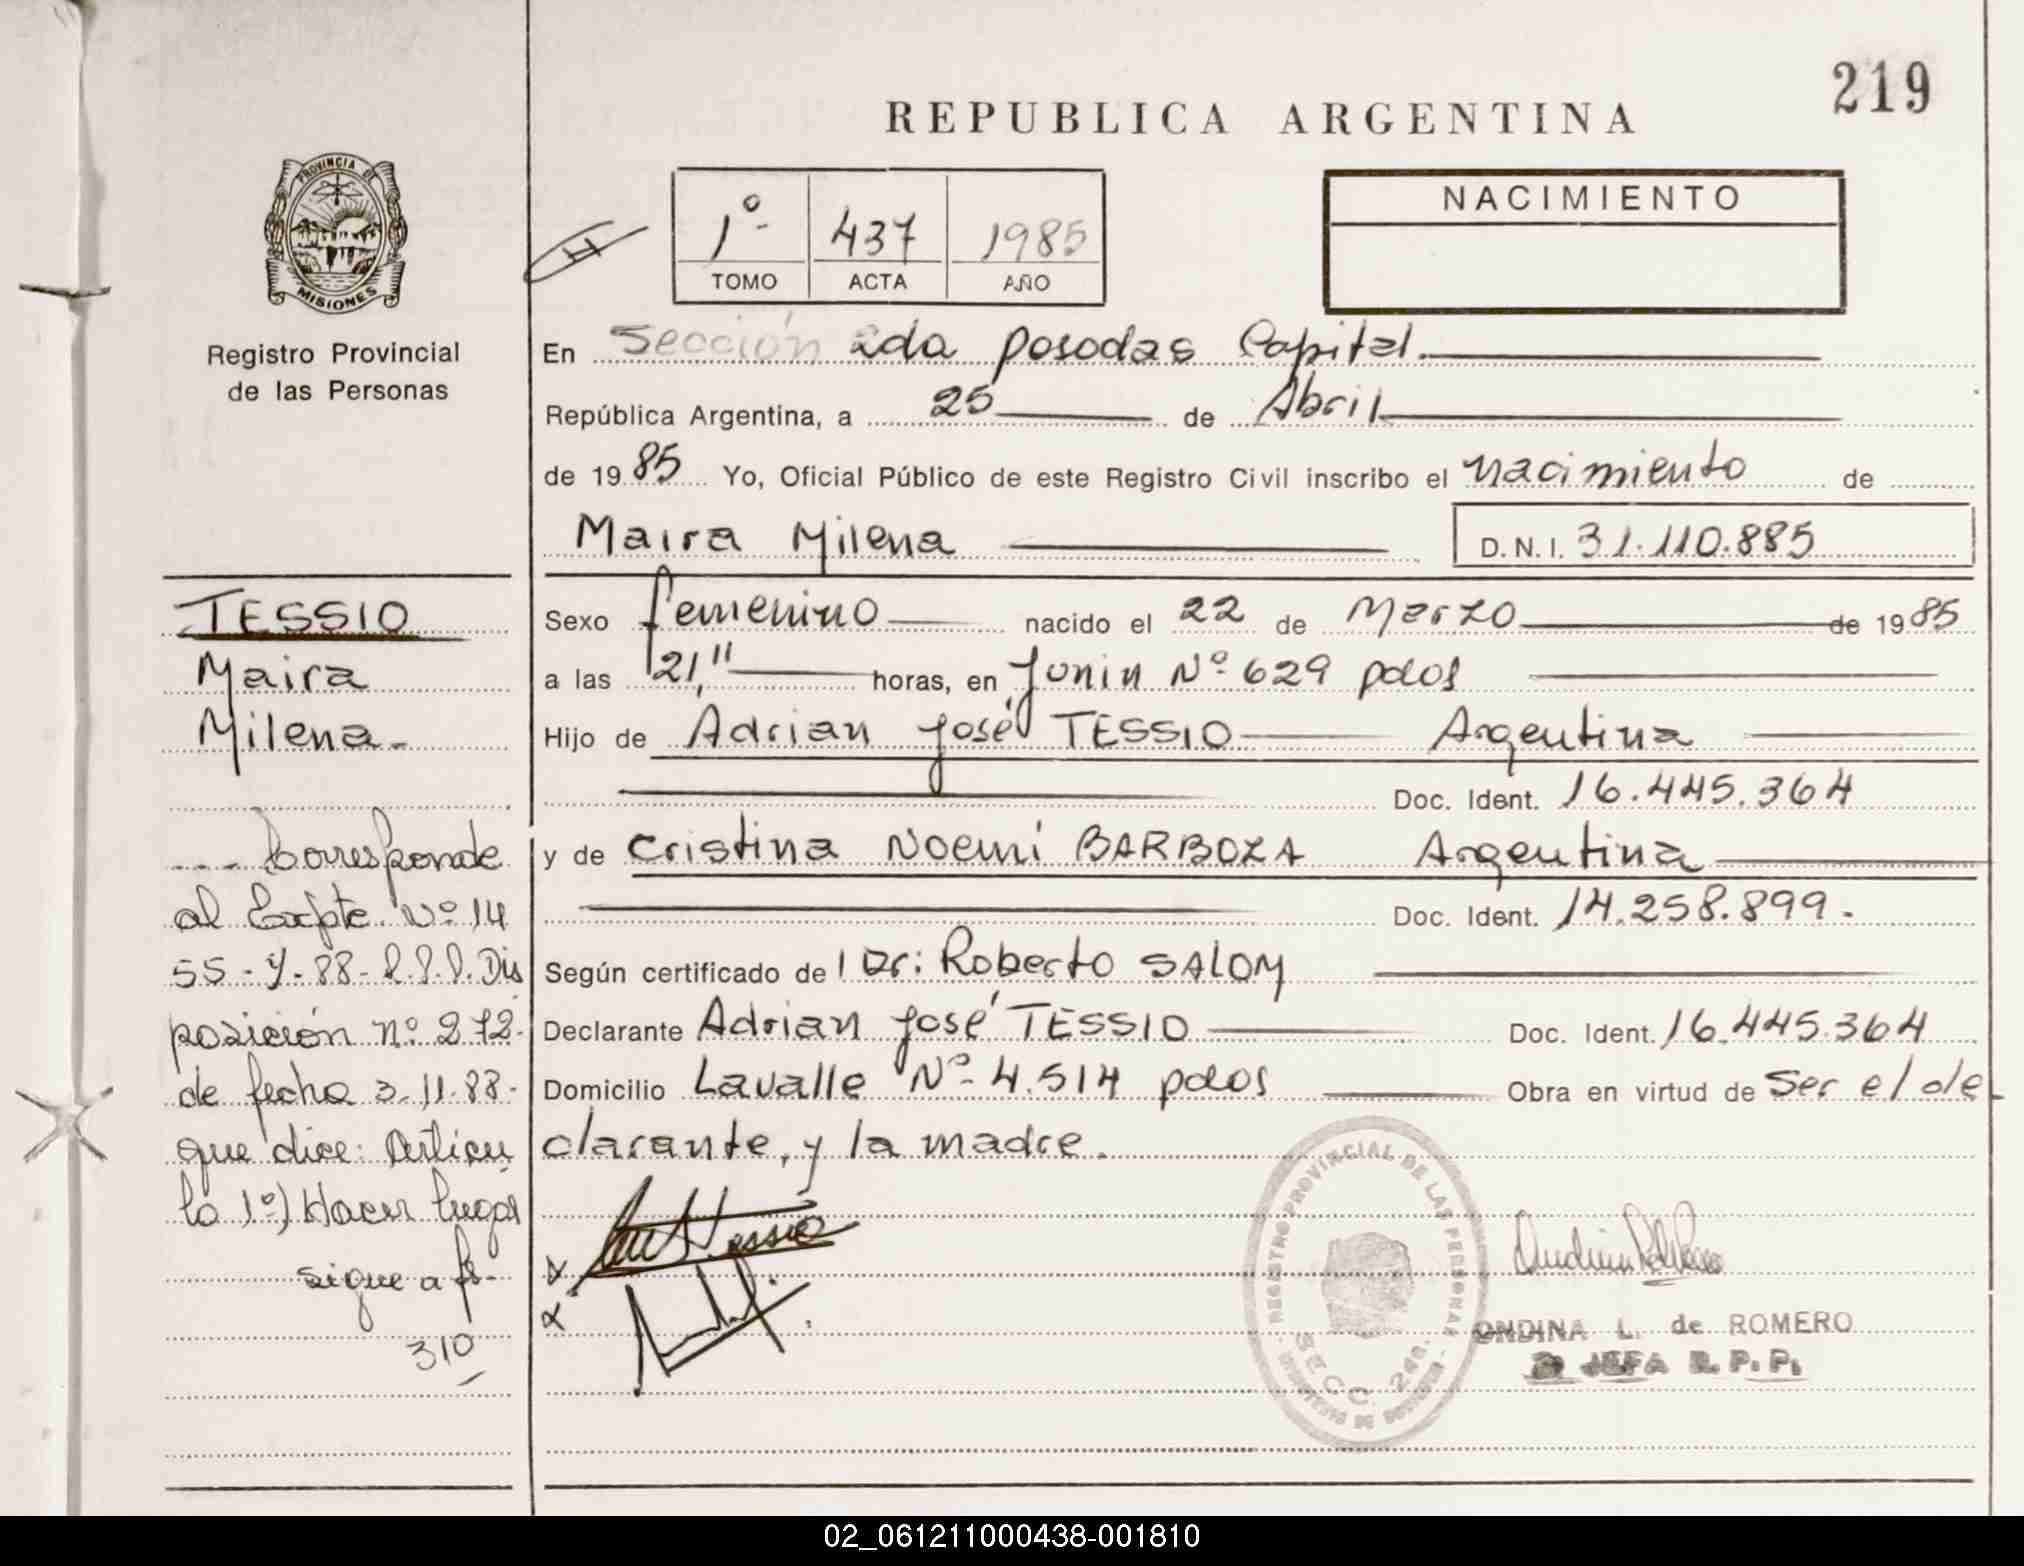 219
REPUBLICA ARGENTINA
PROVINCIA DE
MISIONES
Registro Provincial
de las Personas
1º- 437 1985
TOMO ACTA AÑO
NACIMIENTO
En Sección 2da posadas Capital.
República Argentina, a 25 de Abril
de 1985 Yo, Oficial Público de este Registro Civil inscribo el nacimiento de
Maira Milena D.N.I. 31.110.885
Sexo femenino nacido el 22 de Marzo de 1985
a las 21," horas, en Junin Nº 629 pdas
Hijo de Adrian José TESSIO Argentina
Doc. Ident. 16.445.364
y de Cristina Noemi BARBOZA Argentina
Doc. Ident. 14.258.899.
Según certificado de Dr: Roberto SALOM
Declarante Adrian José TESSIO Doc. Ident. 16.445.364
Domicilio Lavalle Nº- 4.514 pdas Obra en virtud de Ser el de-
clarante, y la madre.
TESSIO
Maira
Milena.-
Corresponde
al Expte Nº 14
55-Y-88-R.P.P. Dis
posición nº 272-
de fecha 3.11.88-
que dice: Artícu
lo 1º) Hacer lugar
sigue a fs-
310
Tessio
REGISTRO PROVINCIAL DE LAS PERSONAS
SECC. 2da.
MINISTERIO DE GOBIERNO
ONDINA L. de ROMERO
JEFA R.P.P.
02_061211000438-001810